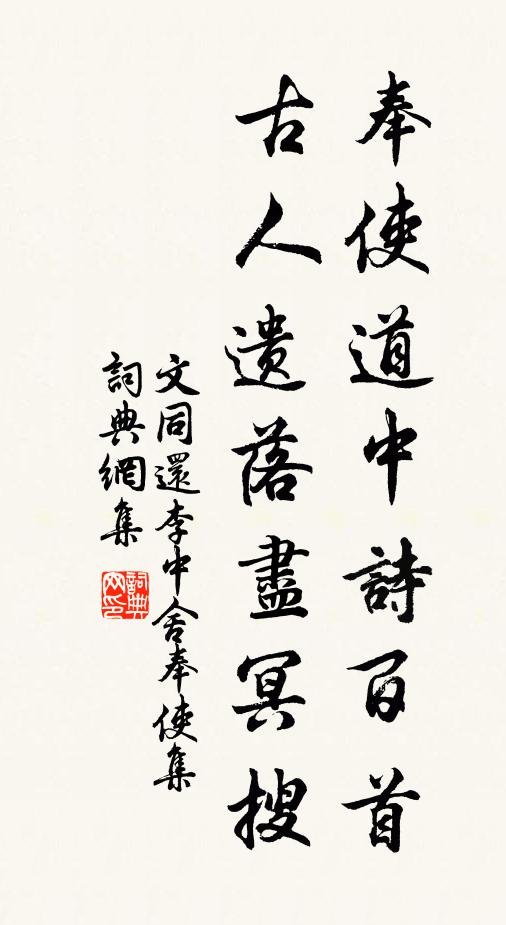 奉使道中詩百首
古人遺落盡冥搜
文同還李中舍奉使集
詞典網集
詞典网印